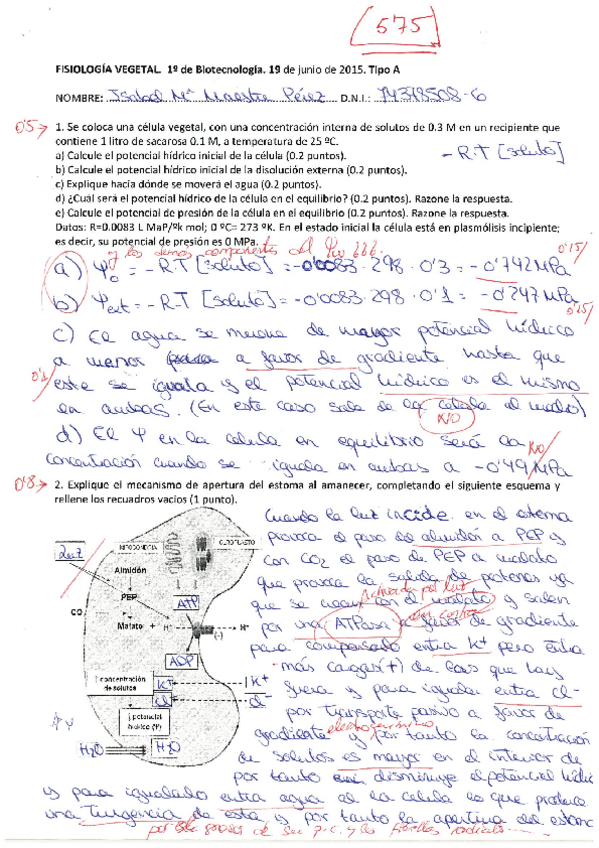 575
FISIOLOGÍA VEGETAL. 1º de Biotecnología. 19 de junio de 2015. Tipo A
NOMBRE: Isabel Mª Maestre Pérez D.N.I.: 74379508-G
0'5 → 1. Se coloca una célula vegetal, con una concentración interna de solutos de 0.3 M en un recipiente que
contiene 1 litro de sacarosa 0.1 M, a temperatura de 25 ºC.
- R·T [soluto]
a) Calcule el potencial hídrico inicial de la célula (0.2 puntos).
b) Calcule el potencial hídrico inicial de la disolución externa (0.2 puntos).
c) Explique hacia dónde se moverá el agua (0.2 puntos).
d) ¿Cuál será el potencial hídrico de la célula en el equilibrio? (0.2 puntos). Razone la respuesta.
e) Calcule el potencial de presión de la célula en el equilibrio (0.2 puntos). Razone la respuesta.
Datos: R=0.0083 L MaP/ºk mol; 0 ºC= 273 ºK. En el estado inicial la célula está en plasmólisis incipiente;
es decir, su potencial de presión es 0 MPa.
y los demás componentes del
a) Ψo = - R·T [soluto] = -0'0083·298·0'3 = -0'742 MPa
0'15/
b) Ψext = - R·T [soluto] = -0'0083·298·0'1 = -0'247 MPa
0'15/
c) El agua se mueve de mayor potencial hídrico
a menor a favor de gradiente hasta que
0'1/
este se iguala y el potencial hídrico es el mismo
en ambas. (En este caso sale de la celula al medio)
NO
d) El Ψ en la celula en equilibrio será la
NO
concentración cuando se iguala en ambas a -0'49 MPa
0'8 → 2. Explique el mecanismo de apertura del estoma al amanecer, completando el siguiente esquema y
rellene los recuadros vacíos (1 punto).
Cuando la luz incide en el estoma
provoca el paso de almidón a PEP y
con CO2 el paso de PEP a malato
que provoca la salida de protones ya
Activada por luz
que se unen con el malato y salen
por una ATPasa a favor de gradiente
para compensarlo entra K+ pero entra
más cargas (+) de las que hay
fuera y para igualar entra Cl-
por transporte pasivo a favor de
gradiente electroquímico y por tanto la concentración
de solutos es mayor en el interior de
por tanto disminuye el potencial hídric
y para igualarlo entra agua al la celula lo que produce
una turgencia de esta y por tanto la apertura del estoma
por el grosor de su p.c. y las fibrillas radiales
Luz
MITOCONDRIA
CLOROPLASTO
Almidón
PEP
CO
ATP
Malato + H+
H+
(-)
ADP
↑ concentración
de solutos
K+
K+
Cl-
Cl-
↓ potencial
hídrico (Ψ)
H2O
H2O